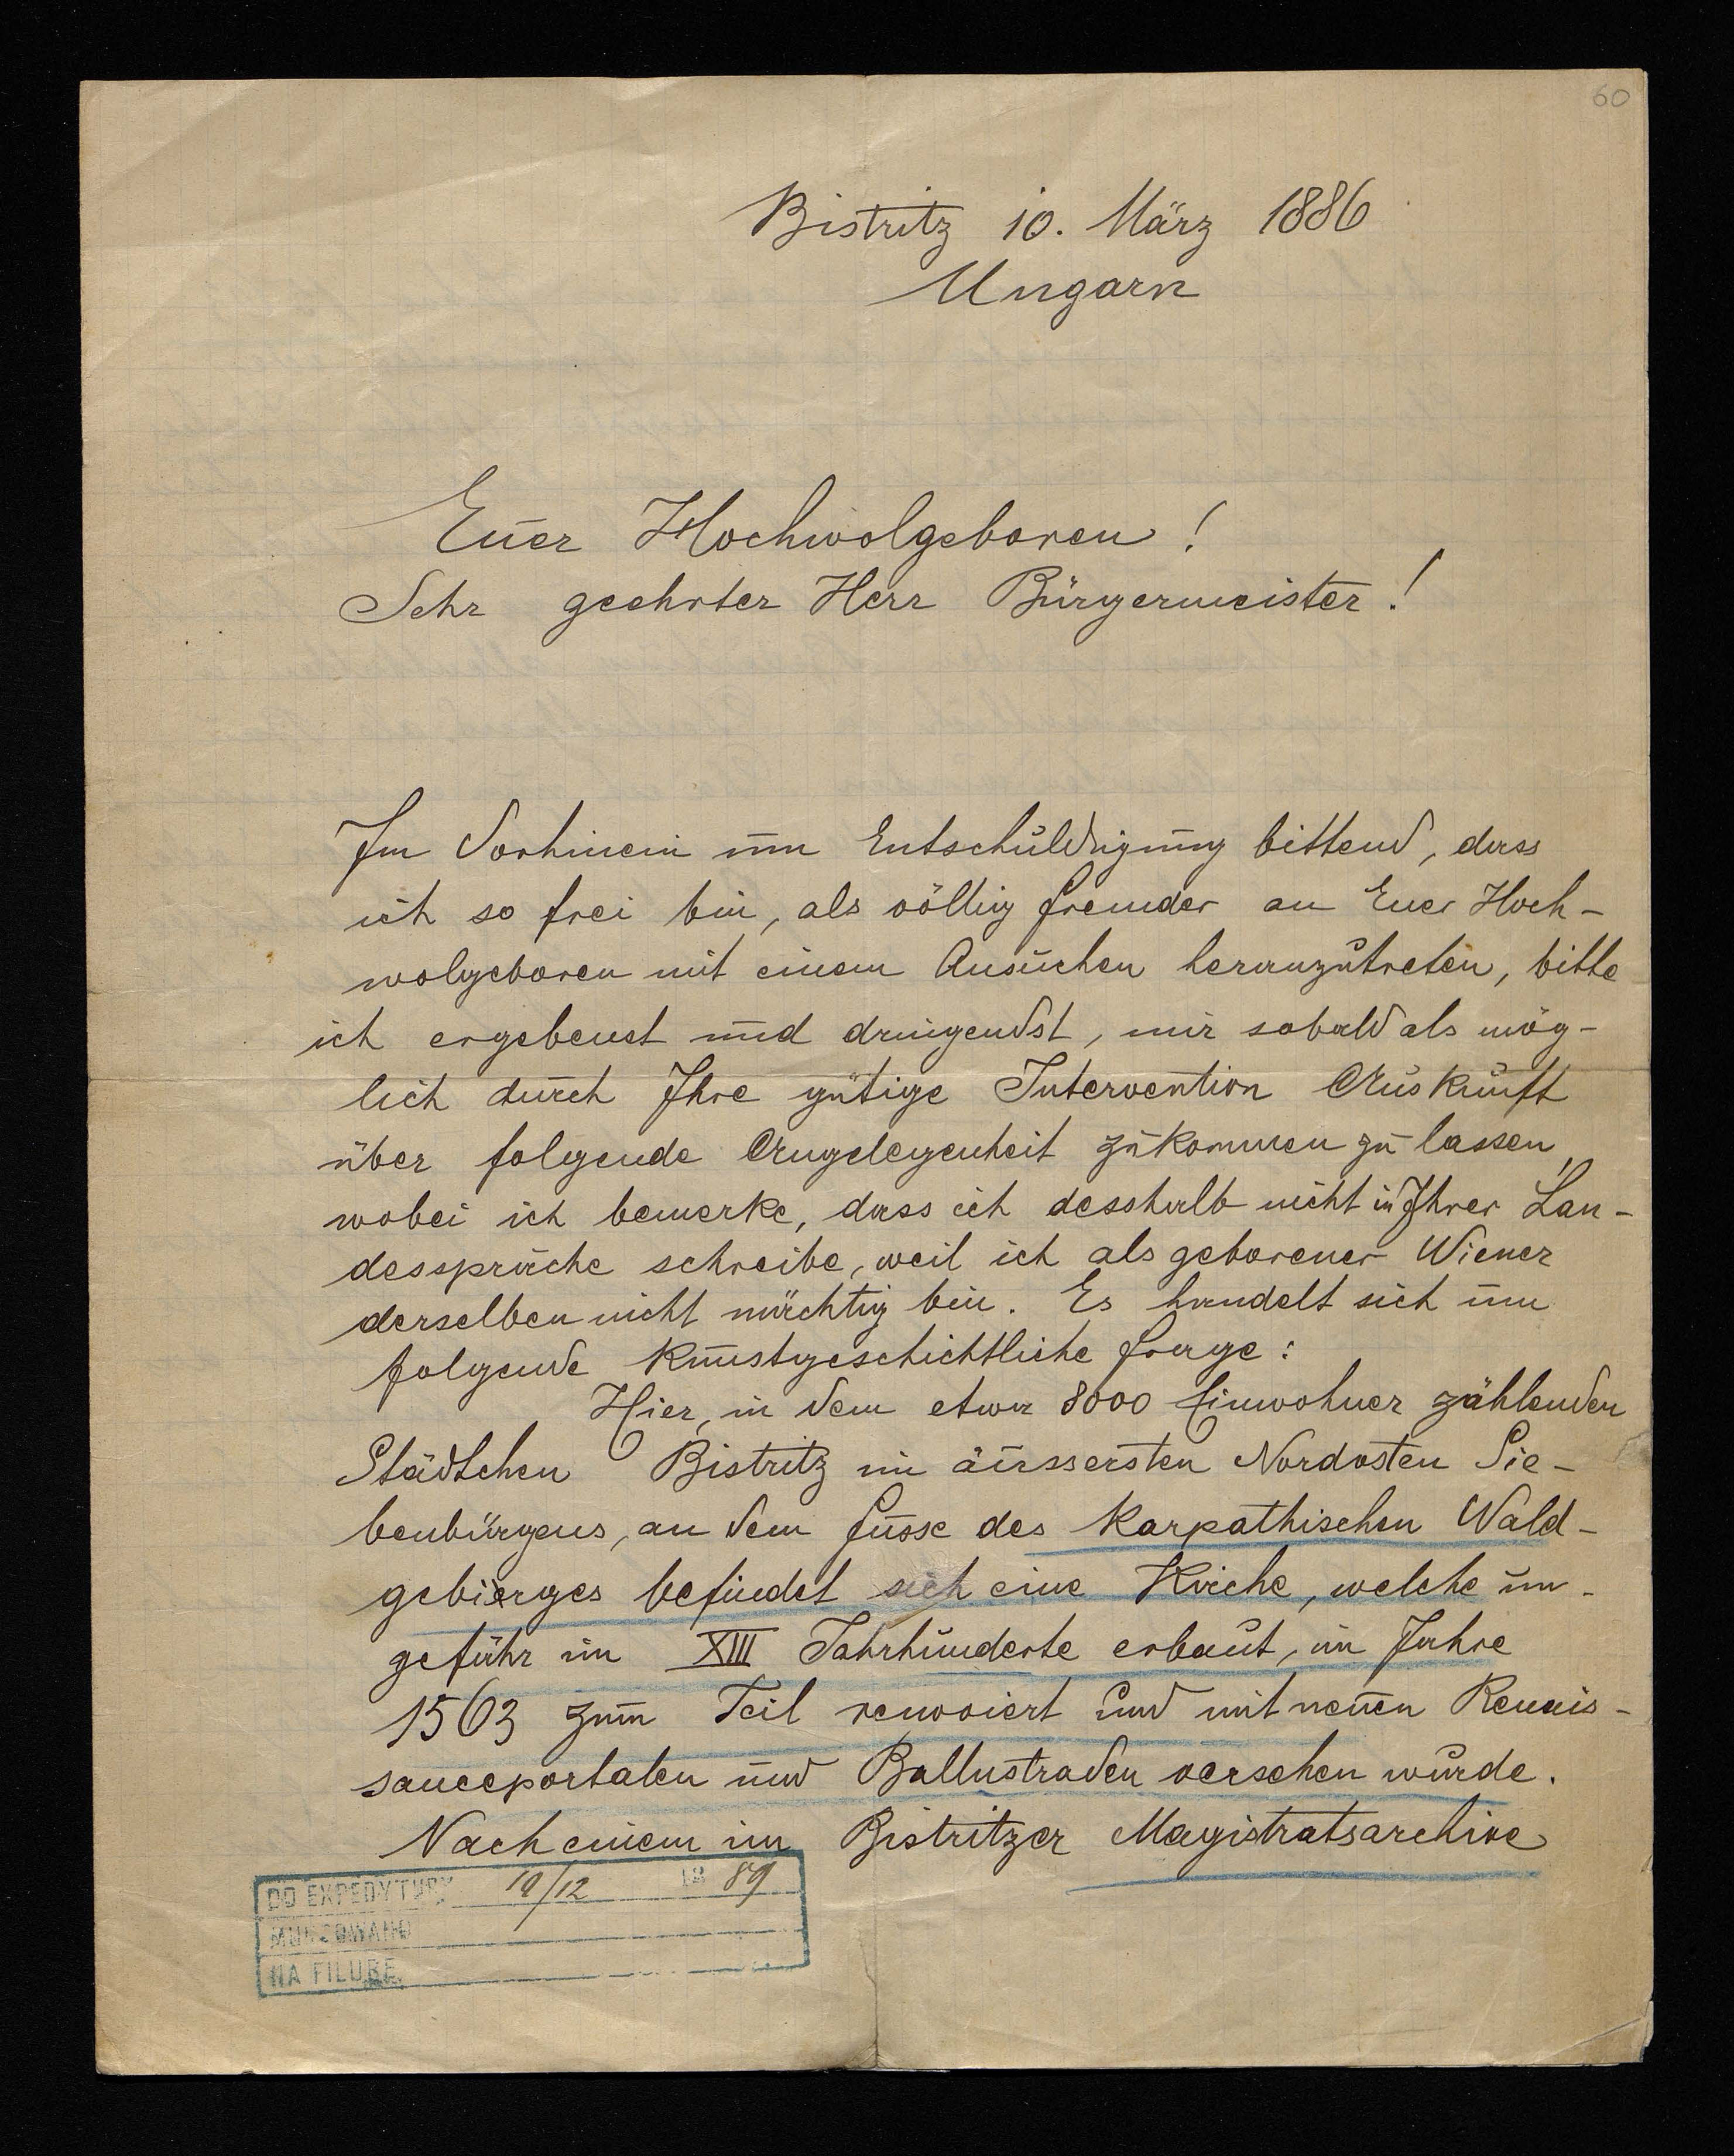 60
Bistritz 10. März 1886
Ungarn
Euer Hochwolgeboren!
Sehr geehrter Herr Bürgermeister!
Im Vorhinein um Entschuldigung bittend, dass
ich so frei bin, als völlig fremder an Euer Hoch-
wolgeboren mit einem Ansuchen heranzutreten, bitte
ich ergebenst und dringendst, mir sobald als mög-
lich durch Ihre gütige Intervention Auskunft
über folgende Angelegenheit zukommen zu lassen,
wobei ich bemerke, dass ich desshalb nicht in Ihrer Lan-
dessprache schreibe, weil ich als geborener Wiener
derselben nicht mächtig bin. Es handelt sich um
folgende kunstgeschichtliche Frage:
Hier, in dem etwa 8000 Einwohner zählenden
Städtchen Bistritz im äussersten Nordosten Sie-
benbürgens, an dem Fusse des Karpathischen Wald-
gebierges befindet sich eine Kirche, welche un-
gefähr im XIII Jahrhunderte erbaut, im Jahre
1563 zum Teil renoviert und mit neuen Renais-
sanceportalen und Ballustraden versehen wurde.
Nach einem im Bistritzer Magistratsarchive
DO EXPEDYTURY 10/12 18 89
MUNDOWANO
NA FILURĘ